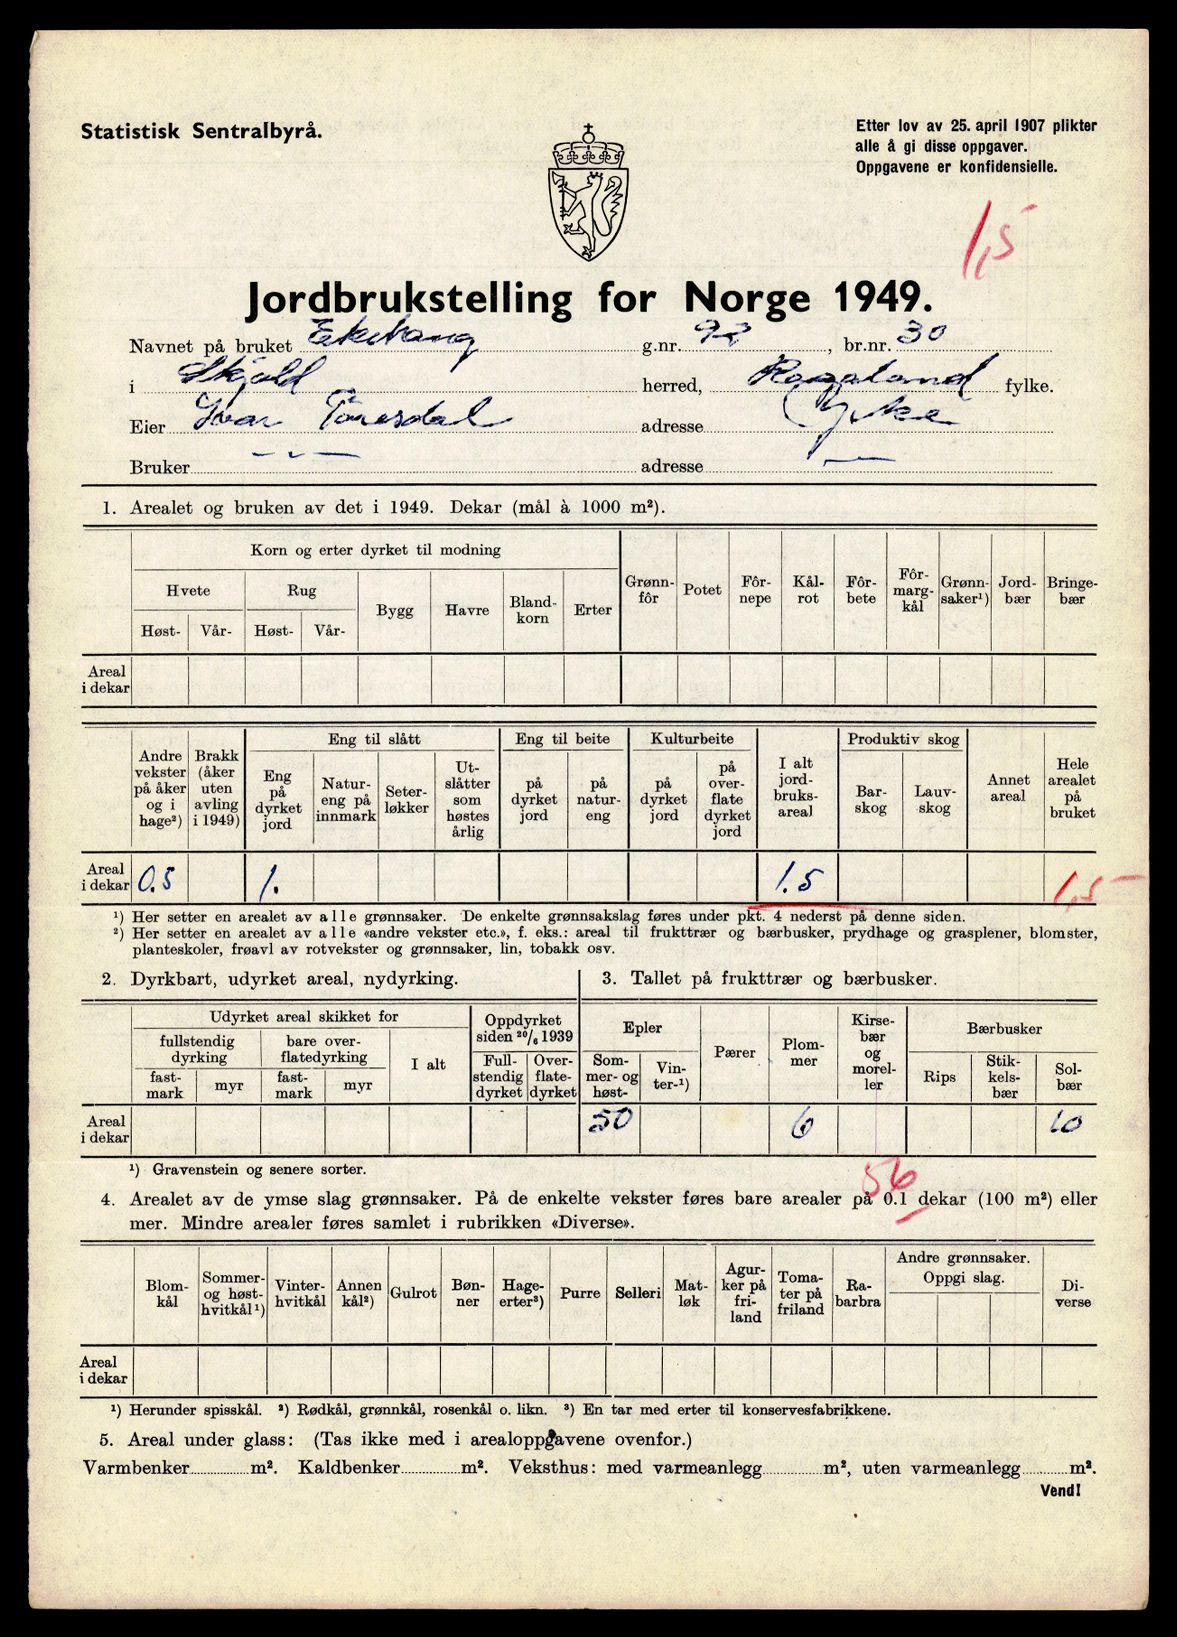 Statistisk Sentralbyrå.
Etter lov av 25. april 1907 plikter
alle å gi disse oppgaver.
Oppgavene er konfidensielle.
1,5
Jordbrukstelling for Norge 1949.
Navnet på bruket g.nr. 92, br.nr. 30
i Skjold herred, Rogaland fylke.
Eier Ivar adresse
Bruker — " — adresse — " —
1. Arealet og bruken av det i 1949. Dekar (mål à 1000 m²).
Korn og erter dyrket til modning
Hvete Rug Bygg Havre Bland-korn Erter Grønn-fôr Potet Fôr-nepe Kål-rot Fôr-bete Fôr-marg-kål Grønn-saker¹) Jord-bær Bringe-bær
Høst- Vår- Høst- Vår-
Areal
i dekar
Eng til slått Eng til beite Kulturbeite Produktiv skog
Andre vekster på åker og i hage²) Brakk (åker uten avling i 1949) Eng på dyrket jord Natur-eng på innmark Seter-løkker Ut-slåtter som høstes årlig på dyrket jord på natur-eng på dyrket jord på over-flate dyrket jord I alt jord-bruks-areal Bar-skog Lauv-skog Annet areal Hele arealet på bruket
Areal
i dekar 0.5 1. 1.5 1,5
¹) Her setter en arealet av alle grønnsaker. De enkelte grønnsakslag føres under pkt. 4 nederst på denne siden.
²) Her setter en arealet av alle «andre vekster etc.», f. eks.: areal til frukttrær og bærbusker, prydhage og grasplener, blomster,
planteskoler, frøavl av rotvekster og grønnsaker, lin, tobakk osv.
2. Dyrkbart, udyrket areal, nydyrking.
Udyrket areal skikket for Oppdyrket siden 20/6 1939
fullstendig dyrking bare over-flatedyrking I alt Full-stendig dyrket Over-flate-dyrket
fast-mark myr fast-mark myr
Areal
i dekar
3. Tallet på frukttrær og bærbusker.
Epler Pærer Plom-mer Kirse-bær og morel-ler Bærbusker
Som-mer- og høst- Vin-ter-¹) Rips Stik-kels-bær Sol-bær
50 6 10
¹) Gravenstein og senere sorter.
56
4. Arealet av de ymse slag grønnsaker. På de enkelte vekster føres bare arealer på 0.1 dekar (100 m²) eller
mer. Mindre arealer føres samlet i rubrikken «Diverse».
Blom-kål Sommer- og høst-hvitkål¹) Vinter-hvitkål Annen kål²) Gulrot Bøn-ner Hage-erter³) Purre Selleri Mat-løk Agur-ker på fri-land Toma-ter på friland Ra-barbra Andre grønnsaker. Oppgi slag. Di-verse
Areal
i dekar
¹) Herunder spisskål. ²) Rødkål, grønnkål, rosenkål o. likn. ³) En tar med erter til konservesfabrikkene.
5. Areal under glass: (Tas ikke med i arealoppgavene ovenfor.)
Varmbenker m². Kaldbenker m². Veksthus: med varmeanlegg m², uten varmeanlegg m².
Vend!